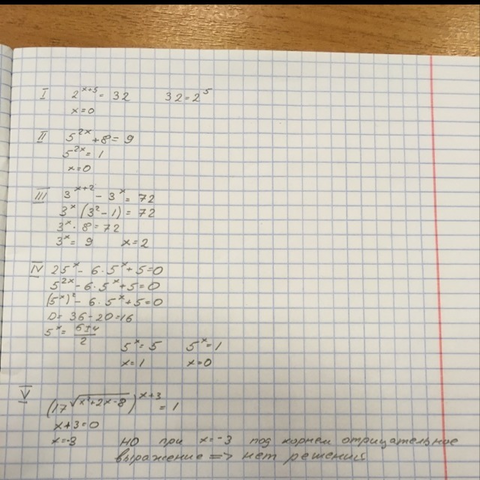 I 2^(x+5) = 32 32 = 2^5
x=0
II 5^(2x) + 8 = 9
5^(2x) = 1
x=0
III 3^(x+2) - 3^x = 72
3^x (3^2 - 1) = 72
3^x · 8 = 72
3^x = 9 x = 2
IV 25^x - 6·5^x + 5 = 0
5^(2x) - 6·5^x + 5 = 0
(5^x)^2 - 6·5^x + 5 = 0
D = 36 - 20 = 16
5^x = (6±4)/2
5^x = 5 5^x = 1
x = 1 x = 0
V (17^√(x^2+2x-8))^(x+3) = 1
x+3=0
x=-3 но при x=-3 под корнем отрицательное
выражение => нет решений